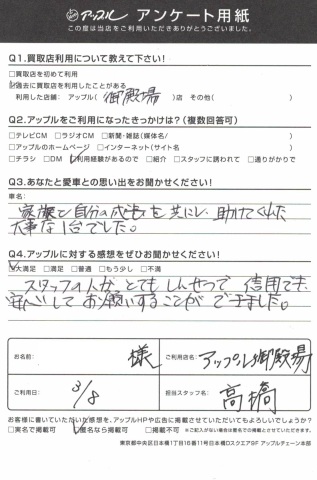 アップル アンケート用紙
この度は当店をご利用いただきありがとうございました。
Q1.買取店利用について教えて下さい!
□買取店を初めて利用
☑過去に買取店を利用したことがある
利用した店舗: アップル( 御殿場 )店 その他( )
Q2.アップルをご利用になったきっかけは?(複数回答可)
□テレビCM □ラジオCM □新聞・雑誌(媒体名/ )
□アップルのホームページ □インターネット(サイト名 )
□チラシ □DM ☑利用経験があるので □紹介 □スタッフに誘われて □通りがかりで
Q3.あなたと愛車との思い出をお聞かせください!
車名:
家族と自分の成長を共にし、助けてくれた
大事な1台でした。
Q4.アップルに対する感想をぜひお聞かせください!
☑大満足 □満足 □普通 □もう少し □不満
スタッフの人が、とてもしんせつで 信用でき、
安心してお願いすることができました。
お名前: 様
ご利用店名: アップル御殿場
ご利用日: 3/8
担当スタッフ名: 高橋
お客様に書いていただいた感想を、アップルHPや広告に掲載させていただいてもよろしいでしょうか?
□実名で掲載可 ☑匿名なら掲載可 □掲載不可 ※ご記入がない場合は匿名での掲載とさせていただきます。
東京都中央区日本橋1丁目16番11号日本橋Dスクエア5F アップルチェーン本部